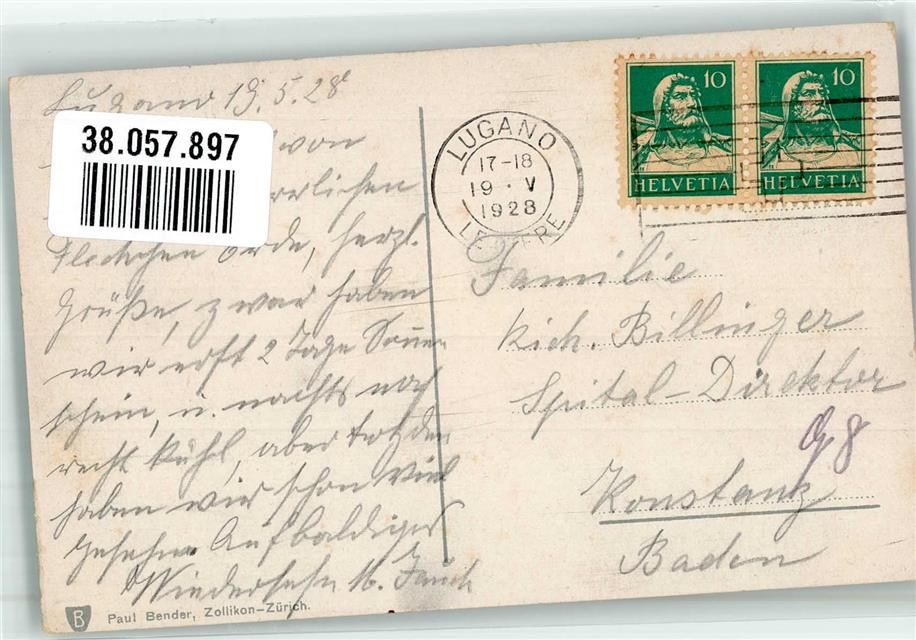 Lugano 19.5.28
38.057.897
von
rrlichen
Fleckchen Erde, herzl.
Grüße, zwar haben
wir erst 2 Tage Sonnen
schein, u. nachts noch
recht kühl, aber trotzdem
haben wir schon viel
gesehen. Auf baldiges
Wiedersehn
B Paul Bender, Zollikon-Zürich.
LUGANO
17-18
19 · V
1928
LETTERE
10 10
HELVETIA HELVETIA
Familie
Rich. Billinger
Spital-Direktor
Konstanz
Baden